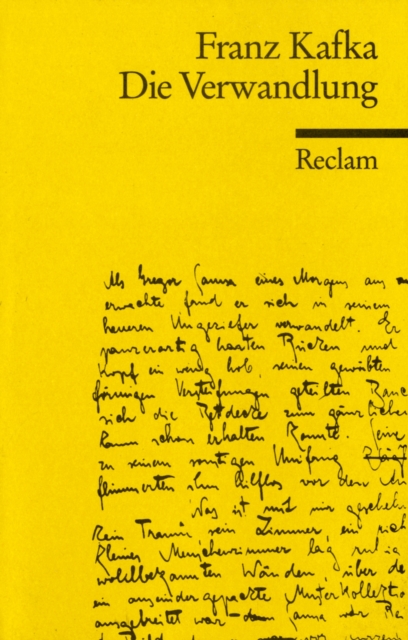 Franz Kafka
Die Verwandlung
Reclam
Als Gregor Samsa eines Morgens aus
erwachte fand er sich in seinem
heueren Ungeziefer verwandelt. Er
panzerartig harten Rücken und
Kopf ein wenig hob, seinen gewölbten
förmigen Versteifungen geteilten Bauc
sich die Bettdecke zum gänzlichen
kaum schon erhalten konnte. Seine
zu seinem sonstigen Umfang
flimmerten ihm hilflos vor den
Was ist mit mir geschehen
Kein Traum sein Zimmer, ein rich
kleines Menschenzimmer lag ruhig
wohlbekannten Wänden, über de
ein auseinandergepackte Musterkollektio
ausgebreitet war Samsa war Rei